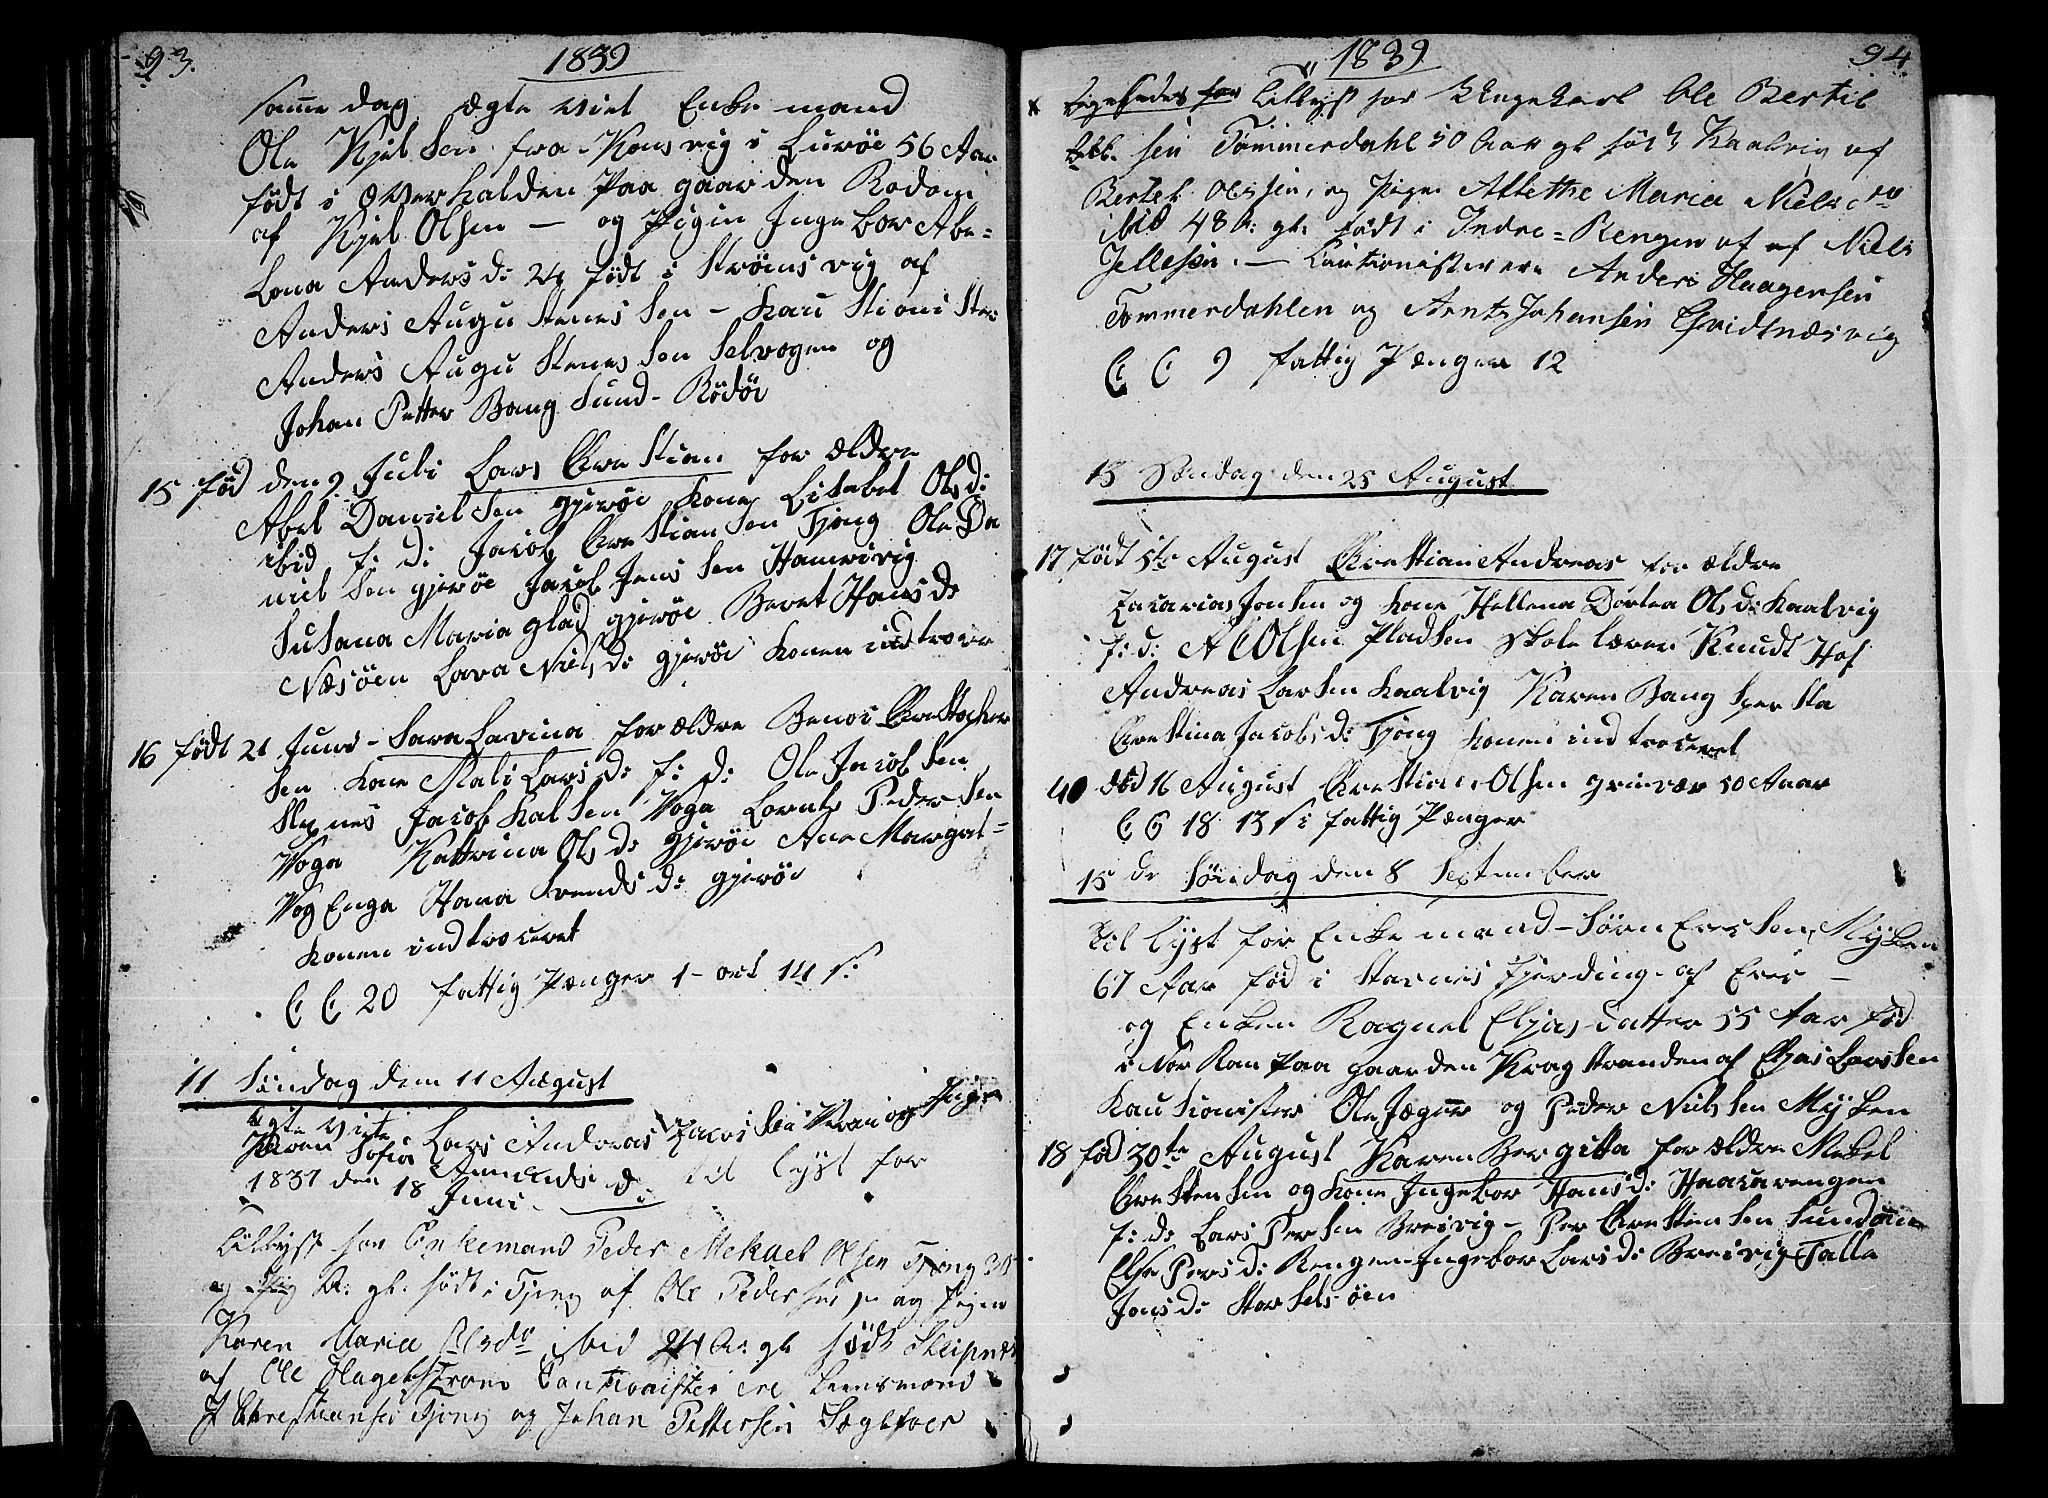 93.
1839
samme dag ægte viet Enke mand
Ole Kjelsen fra Konsvig i Lurøe 56 Aar
født i Overhalden Paa gaarden Rodom
af Kjel Olsen — og Pigin Ingebor Abe=
Lona Anders d: 24 født i Strømsvig af
Anders Augustenessen - Kau stionister
Anders Augu Stenessen Selvogen og
Johan Petter Bang Sund - Rödöe
15 fød den 9 Juli Lars Cre Stian for ældre
Abel Daniel Sen gjeröe Kone Lisabet Ols d:
ibid f: d: Jacob Cre Stian Sen Tjong Ole Da
niel Sen gjeröe Jacob Jens Sen Hamrvig
Susana Maria Glad gjeröe Beret Hans d:
Næsöen Lava Niels d: gjeröe Konen introser
16 født 21 Juni - Sara Lavina for ældre Benoi CreStopher
Sen Kone Mali Lars d: f: d: Ole Jacob Sen
Slepnes Jacob Kal Sen Voga Lornts Peder Sen
Voga Kattrina Ols d: gjeröe Ane Margret=
Vog Enga Hana Svends d: gjeröe
Konen indtroseret
C C 20 fattig Pænger 1 - ort 14 s:
11 Søndag den 11 August
Ægte Viet Lars Andreas Zacrisen Væran og Pigen
Karen Sofia
1837 den 18 d: til lyst for
Juni
Tillyst for Enkemand Peder Mekael Olsen Tjong 30
A: gl: født i Tjong af Ole Pedersen og Pigen
Karen Maria Olsdr ibid 24 A: gl født Sleipnes
af Ole Hagelstrøm Cautionister ere Leensmand
J Christiansen Tjong og Johan Pettersen Sægefoer
1839
94.
Ligeledes for Tillyst for Ungekarl Ole Bertil
sen Tømmerdahl 50 Aar gl født Kaalvig af
Bertel Olssen, og Pige Allethe Maria Niels dr
ibid 48 A: gl: født i Indre=Rengen af af Niels
Jellesen. — Cautionister ere Anders Haagensen
Tømmerdahlen og Arnt Johansen Qvidtnæsvig
C C 9 fattig Pænger 12
13 Søndag den 25 August
17 født 5te August CreStian Andreas for ældre
Zacarias Jonsen og Kone Hellena Dortea Ols d: Kaalvig
f: d: A C Olsen Pladsen Skole lærer Knudt Hof
Andreas Larsen Kaalvig Karen Bang Sper Sta
CreStina Jacobs d: Tjong Konen indtroseret
40 död 16 August CreStian Olsen Grinvær 50 Aaar
C C 18 13 s: fattig Pænger
15 de Söndag den 8 September
Til lyst for Enke mand - Sörn Ericsen Myken
67 Aar fød i Starnes Fjerding af Eric —
og Enken Ragnel Eljas Datter 55 Aar fød
i Nor Ran Paa gaarden Krag Stranden af Eljas Larssen
Kautionister Ole Jæger og Peder Nielsen Myken
18 fød 30te August Karen Bergitta for ældre Mekel
CreStensen og Kone Ingebor Hans d: Haararengen
f: d: Lars Persen Breivig - Per CreStensen Sundöen
Else Pers d: Rengen Ingebor Lars d: Breivig Talla
Jons d: Storselsöen